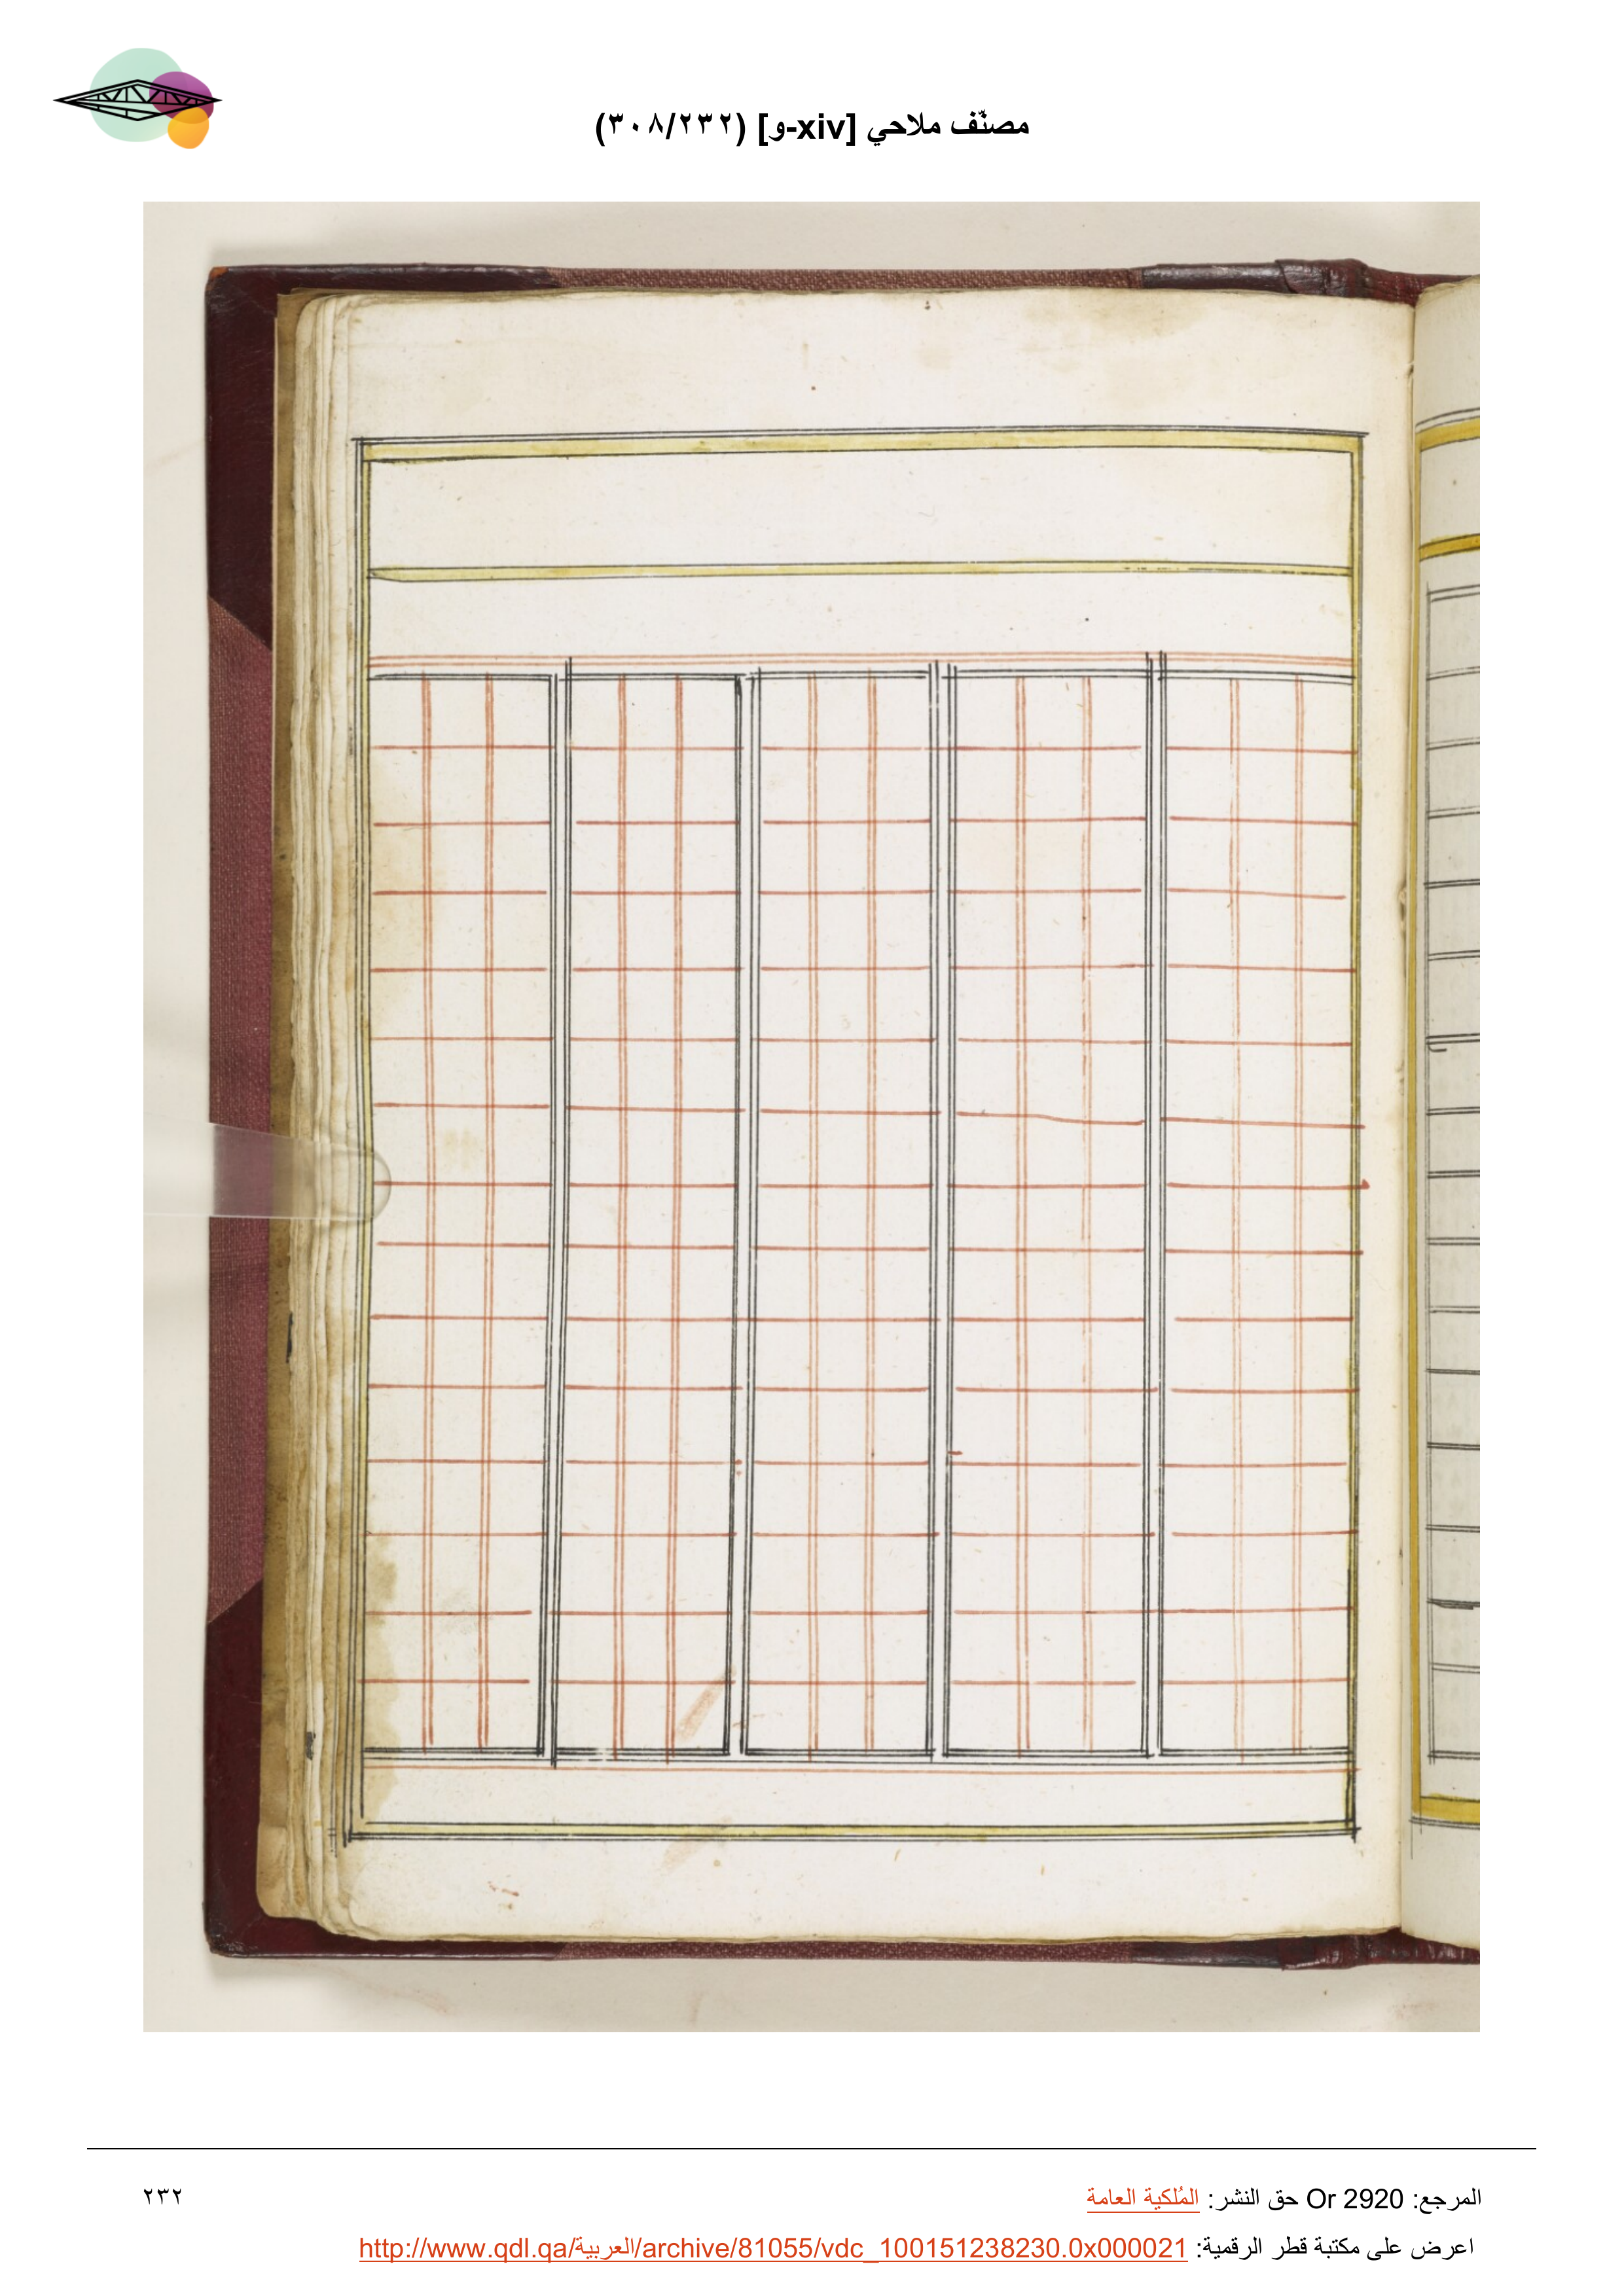 مصنّف ملاحي [xiv-و] (٢٣٢/٣٠٨)
المرجع: Or 2920 حق النشر: المُلكية العامة
٢٣٢
اعرض على مكتبة قطر الرقمية: http://www.qdl.qa/العربية/archive/81055/vdc_100151238230.0x000021